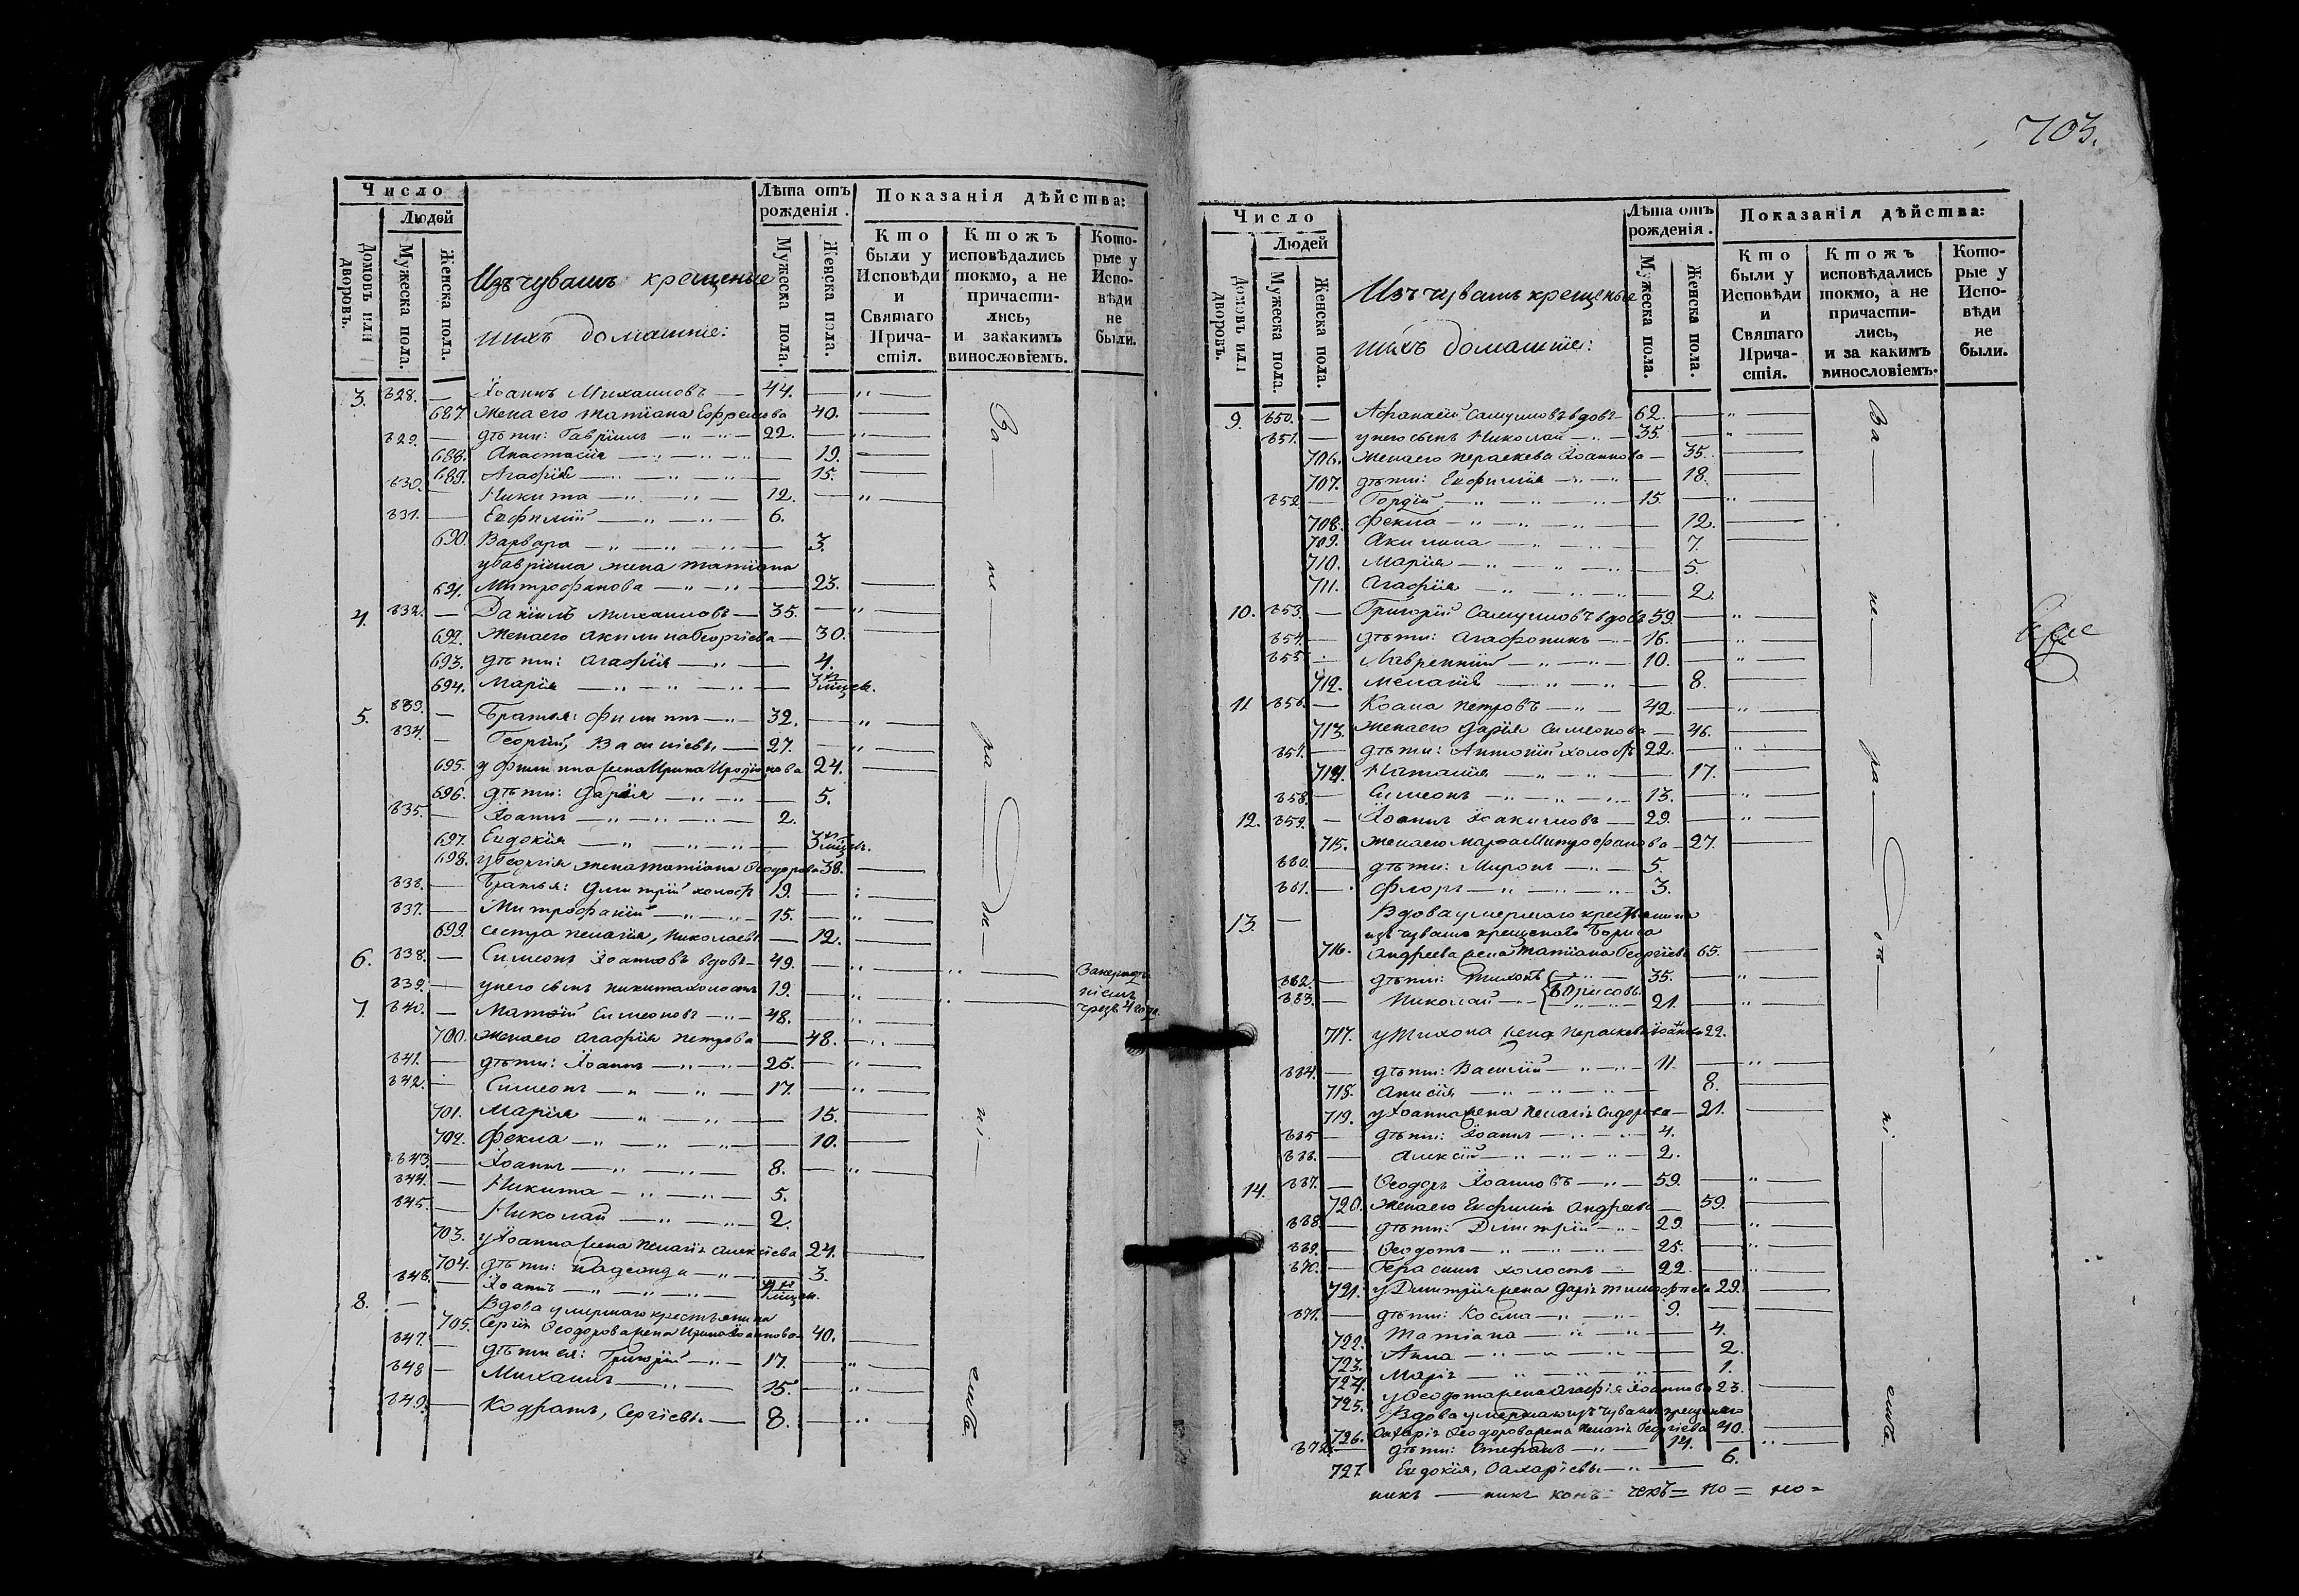 703.
Число
Людей
Домовъ или дворовъ.
Мужеска пола.
Женска пола.
Изъ чувашъ крещеные
ихъ домашніе:
Лѣта отъ рожденія.
Мужеска пола.
Женска пола.
Показанія дѣйства:
Кто были у Исповѣди и Святаго Прича-стія.
Ктожъ исповѣдались токмо, а не причасти-лись, и закакимъ винословіемъ.
Кото-рые у Испо-вѣди не были.
3. 328. — Іоаннъ Михаиловъ — 44. — „ —
687. Жена его Татіана Ефремова 40. —
329. — дѣти: Гавріилъ — „ — 22. — „ —
688. Анастасія — „ — „ — 19. —
689. Агафія — „ — „ — 15. —
330. — Никита — „ — „ — 12. — „ —
331. — Евфимій — „ — „ — 6.
690. Варвара — „ — „ — 3.
у Гавріила жена Татіана
691. Митрофанова — „ — „ — 23. —
4. 332. — Даніилъ Михаиловъ — 35. — „ —
692. Жена его Акилина Георгіева — 30. —
693. дѣти: Агафія — „ — 4.
694. Марія — „ — „ — „ — 3
5. 333. — Братья: Филиппъ — „ — 32. — „ —
334. — Георгій, Василіевы — 27. — „ —
695. у Филиппа жена Ирина Иродіонова 24. —
696. дѣти: Дарія — „ — „ — 5.
335. — Іоаннъ — „ — „ — 2.
697. Евдокія — „ — „ — „ — 3
698. у Георгія жена Татіана Ѳеодорова 38. —
336. — Братья: Димитрій холостъ 19. — „ —
337. — Митрофаній — „ — „ — 15. — „ —
699. сестра Пелагія, Николаевы — 12. —
6. 338. — Симеонъ Іоанновъ вдовъ — 49. — „ — „ —
339. — у него сынъ Никита холостъ 19. — „ — „ —
7. 340. — Матѳій Симеоновъ — „ — 48. — „ —
700. Жена его Агафія Петрова — 48. — „ —
341. — дѣти: Іоаннъ — „ — „ — 25. — „ —
342. — Симеонъ — „ — „ — 17. — „ —
701. Марія — „ — „ — 15. —
702. Фекла — „ — „ — „ — 10. —
343. — Іоаннъ — „ — „ — 8. — „ —
344. — Никита — „ — „ — 5.
345. — Николай — „ — „ — 2.
703. у Іоанна жена Пелагія Алексіева 24. —
704. дѣти: — „ — 3.
346. — Іоаннъ — „ — „ — „ —
8. — Вдова умершаго крестьянина
705. Сергія Ѳеодорова жена Ирина Іоаннова 40. —
347. — дѣти ея: Григорій — „ — 17. — „ —
348 — Михаилъ — „ — 15. — „ —
349. — Кодратъ, Сергіевы — 8. — „ —
За — не — ра —
ні —
емъ.
Число
Людей
Домовъ или дворовъ.
Мужеска пола.
Женска пола.
Изъ чувашъ крещеные
ихъ домашніе:
Лѣта отъ рожденія.
Мужеска пола.
Женска пола.
Показанія дѣйства:
Кто были у Исповѣди и Святаго Прича-стія.
Ктожъ исповѣдались токмо, а не причасти-лись, и за какимъ винословіемъ.
Кото-рые у Испо-вѣди не были.
9. 350. — Афанасій Самуиловъ вдовъ 62. — „ —
351. — у него сынъ Николай — „ — 35. — „ —
706. Жена его Параскева Іоаннова — 35. —
707. дѣти: Евфимія — „ — „ — 18. —
352 — Гордій — „ — „ — „ — 15. — „ —
708. Фекла — „ — „ — „ — 12. —
709. Акилина — „ — „ — 7. —
710. Марія — „ — „ — „ — 5.
711. Агафія — „ — „ — „ — 2.
10. 353. — Григорій Самуиловъ вдовъ 59. — „ —
354. — дѣти: Агафоникъ — „ — 16. — „ —
355 — Лаврентій — „ — „ — 10. — „ —
712. Меланія — „ — „ — 8. —
11 356. — Косма Петровъ — „ — 42. — „ —
713. Жена его Дарія Симеонова — 46. —
357. — дѣти: Антоній холостъ 22. — „ —
714. Наталія — „ — „ — 17. —
358. — Симеонъ — „ — „ — „ — 13. — „ —
12. 359. — Іоаннъ Іоакимовъ — 29. — „ —
715. Жена его Марѳа Митрофанова — 27. —
360. — дѣти: Миронъ — „ — 5.
361. — Флоръ — „ — „ — „ — 3.
13. — Вдова умершаго крестьянина
изъ чувашъ крещенаго Бориса
716. Андреева жена Татіана Георгіева 65. —
362. — дѣти: Тихонъ — „ — 35. — „ —
363. — Николай — „ — Борисовы. 21. — „ —
717. у Тихона жена Параскева Іоаннова 22.
364. — дѣти: Василій — „ — „ — 11. — „ —
718. Анисія — „ — „ — „ — 8. —
719. у Іоанна жена Пелагія Сидорова — 21. —
365 — дѣти: Іоаннъ — „ — „ — 4.
366. — Алексій — „ — „ — „ — 2.
14. 367. — Ѳеодоръ Іоанновъ — „ — 59. — „ —
720. Жена его Евфимія Андреева — 59. —
368. — дѣти: Димитрій — „ — 29. — „ —
369. — Ѳеодотъ — „ — „ — „ — 25. — „ —
370. — Герасимъ холостъ — 22. — „ —
721. у Димитрія жена Дарія Тимофеева 29. —
371. — дѣти: Косма — „ — „ — 9. —
722. Татіана — „ — „ — 4.
723. Анна — „ — „ — „ — 2.
724. Марія — „ — „ — „ — 1.
725. у Ѳеодота жена Агафія Іоаннова 23. —
Вдова умершаго изъ чувашъ крещенаго
726. Захарія Ѳеодорова жена Пелагія Георгіева 40. —
372. — дѣти: Стефанъ — „ — 14. — „ —
727. Евдокія, Захаріевы — „ — 6.
За — не — ра —
ні —
емъ.